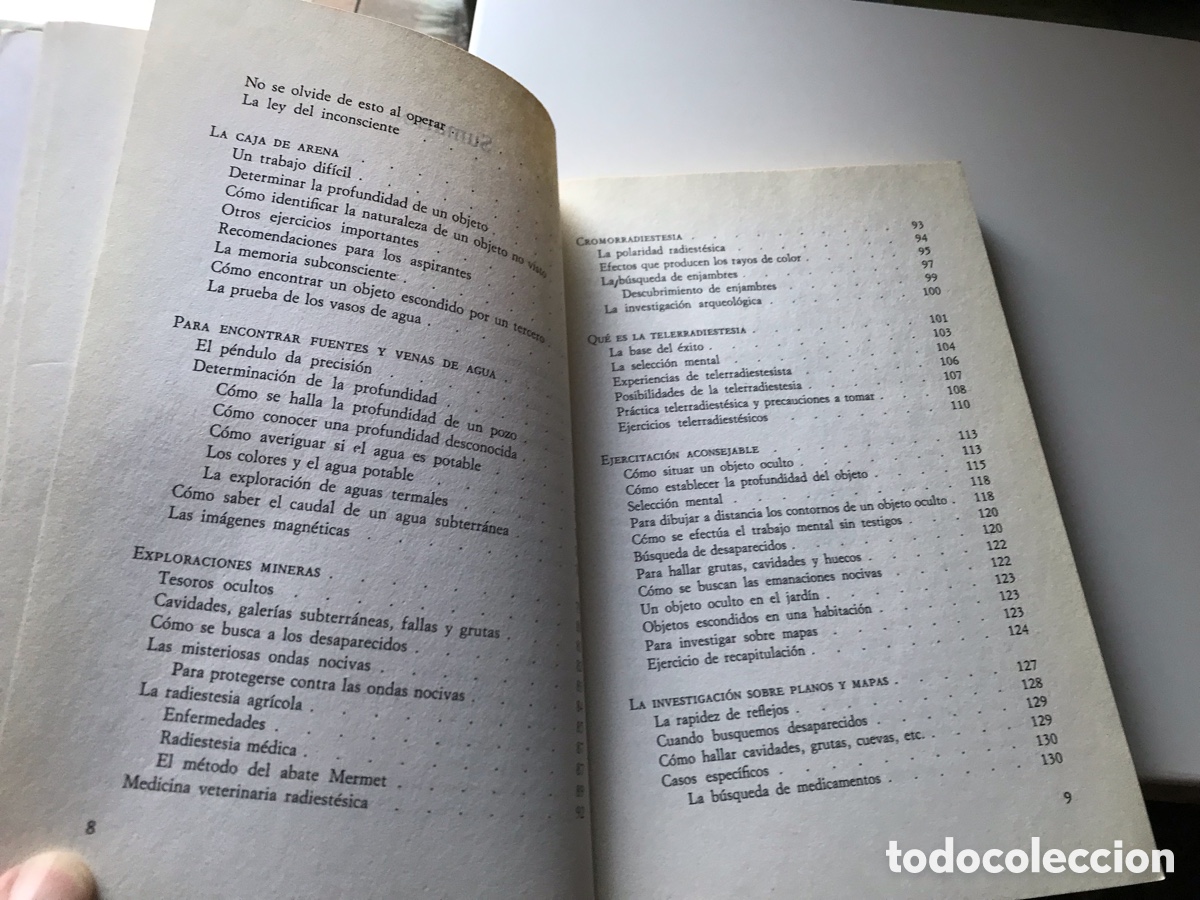 No se olvide de esto al operar . . . .
La ley del inconsciente . . . . .
LA CAJA DE ARENA . . . . .
Un trabajo difícil . . . . .
Determinar la profundidad de un objeto . . .
Cómo identificar la naturaleza de un objeto no visto
Otros ejercicios importantes . . . .
Recomendaciones para los aspirantes . . .
La memoria subconsciente . . . .
Cómo encontrar un objeto escondido por un tercero .
La prueba de los vasos de agua . . . .
PARA ENCONTRAR FUENTES Y VENAS DE AGUA . .
El péndulo da precisión . . . . .
Determinación de la profundidad . . . .
Cómo se halla la profundidad de un pozo . .
Cómo conocer una profundidad desconocida . .
Cómo averiguar si el agua es potable . . .
Los colores y el agua potable . . . .
La exploración de aguas termales . . . .
Cómo saber el caudal de un agua subterránea . .
Las imágenes magnéticas . . . . .
EXPLORACIONES MINERAS . . . . .
Tesoros ocultos . . . . . .
Cavidades, galerías subterráneas, fallas y grutas . .
Cómo se busca a los desaparecidos . . . .
Las misteriosas ondas nocivas . . . .
Para protegerse contra las ondas nocivas . . . 83
La radiestesia agrícola . . . . . . 84
Enfermedades . . . . . . . 85
Radiestesia médica . . . . . . 87
El método del abate Mermet . . . . . 87
Medicina veterinaria radiestésica . . . . 89
90
8
CROMORRADIESTESIA . . . . . . . 93
La polaridad radiestésica . . . . . . 94
Efectos que producen los rayos de color . . . . 95
La búsqueda de enjambres . . . . . . 97
Descubrimiento de enjambres . . . . . 99
La investigación arqueológica . . . . . 100
QUÉ ES LA TELERRADIESTESIA . . . . . 101
La base del éxito . . . . . . . 103
La selección mental . . . . . . 104
Experiencias de telerradiestesista . . . . . 106
Posibilidades de la telerradiestesia . . . . 107
Práctica telerradiestésica y precauciones a tomar . . . 108
Ejercicios telerradiestésicos . . . . . 110
EJERCITACIÓN ACONSEJABLE . . . . . 113
Cómo situar un objeto oculto . . . . . 113
Cómo establecer la profundidad del objeto . . . 115
Selección mental . . . . . . . 118
Para dibujar a distancia los contornos de un objeto oculto . 118
Cómo se efectúa el trabajo mental sin testigos . . . 120
Búsqueda de desaparecidos . . . . . . 120
Para hallar grutas, cavidades y huecos . . . . 122
Cómo se buscan las emanaciones nocivas . . . . 122
Un objeto oculto en el jardín . . . . . 123
Objetos escondidos en una habitación . . . . 123
Para investigar sobre mapas . . . . . 123
Ejercicio de recapitulación . . . . . . 124
LA INVESTIGACIÓN SOBRE PLANOS Y MAPAS . . . . 127
La rapidez de reflejos . . . . . . 128
Cuando busquemos desaparecidos . . . . . 129
Cómo hallar cavidades, grutas, cuevas, etc. . . . 129
Casos específicos . . . . . . . 130
La búsqueda de medicamentos . . . . . 130
9
todocoleccion